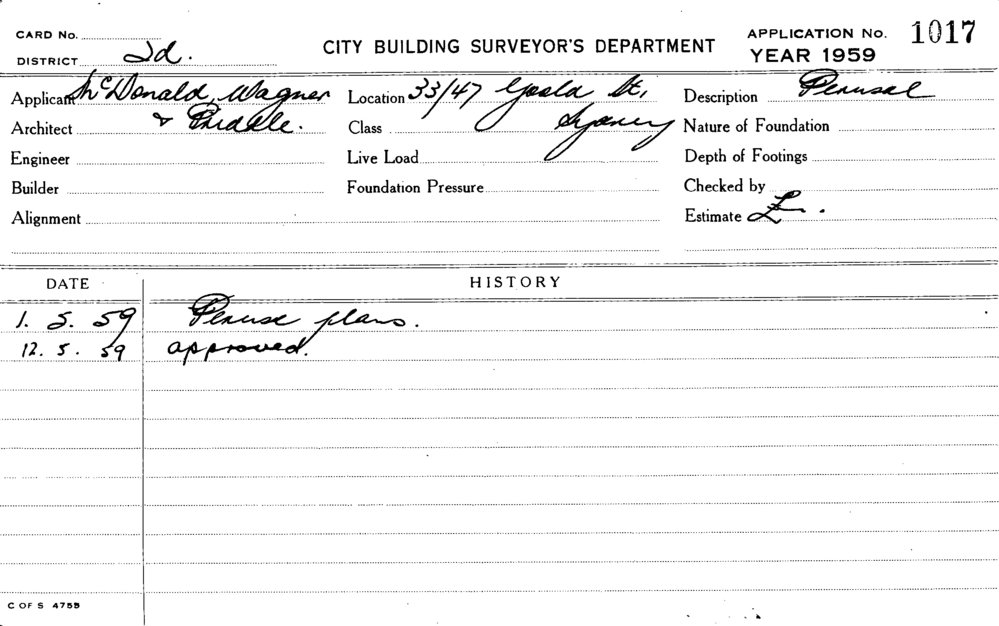 CARD No.
DISTRICT 2d.
CITY BUILDING SURVEYOR'S DEPARTMENT
APPLICATION No. 1017
YEAR 1959
Applicant McDonald, Wagner
& Priddle.
Architect
Engineer
Builder
Alignment
Location 33/47 Goold St,
Sydney
Class
Live Load
Foundation Pressure
Description Perusal
Nature of Foundation
Depth of Footings
Checked by
Estimate £ .
DATE HISTORY
1. 5. 59 Peruse plans.
12. 5. 59 approved.
C OF S 4759